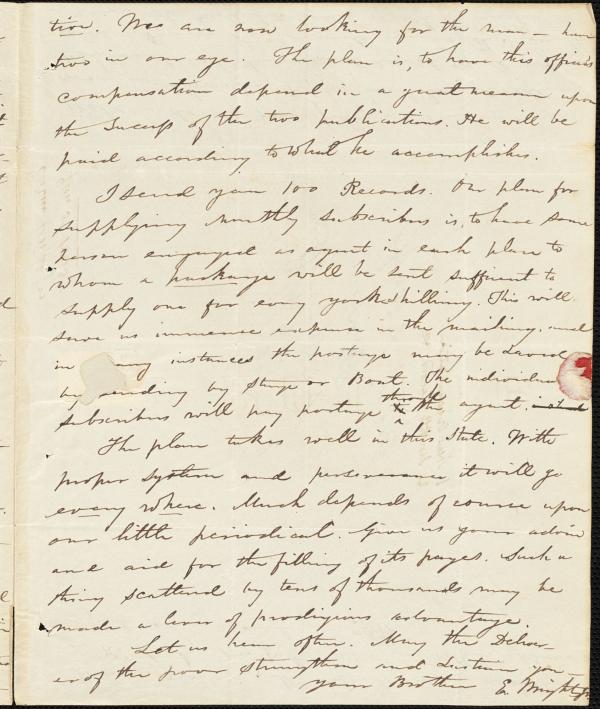 tion. We are now looking for the man — have
two in our eye. The plan is, to have this officer's
compensation depend in a great measure upon
the Success of the two publications. He will be
paid according to what he accomplishes.
I send you 100 Records. Our plan for
supplying Monthly subscribers is, to have some
person engaged as agent in each place to
whom a package will be sent sufficient to
supply one for every york shilling. This will
save us immense expense in the mailing, and
in many instances the postage may be saved
by sending by Stage or Boat. The individual
subscribers will pay postage through the agent.
The plan takes well in this State. With
proper system and perseverance it will go
every where. Much depends of course upon
our little periodical. Give us your advice
and aid for the filling of its pages. Such a
thing scattered by tens of thousands may be
made a lever of prodigious advantage.
Let us hear often. May the Deliver-
er of the poor strengthen and sustain you —
your Brother E. Wright Jr